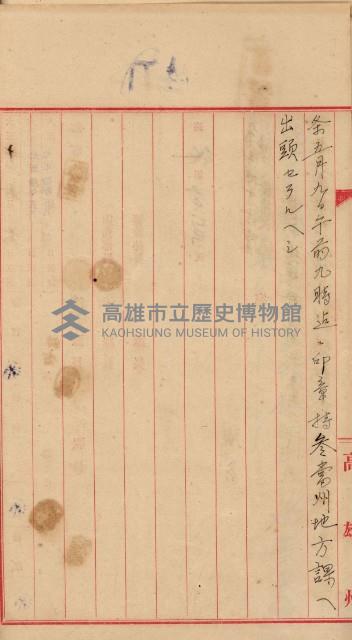 条五月九日午前九時迠ニ印章持参當州地方課ヘ
出頭セラルヘシ
高雄州
高雄市立歷史博物館
KAOHSIUNG MUSEUM OF HISTORY